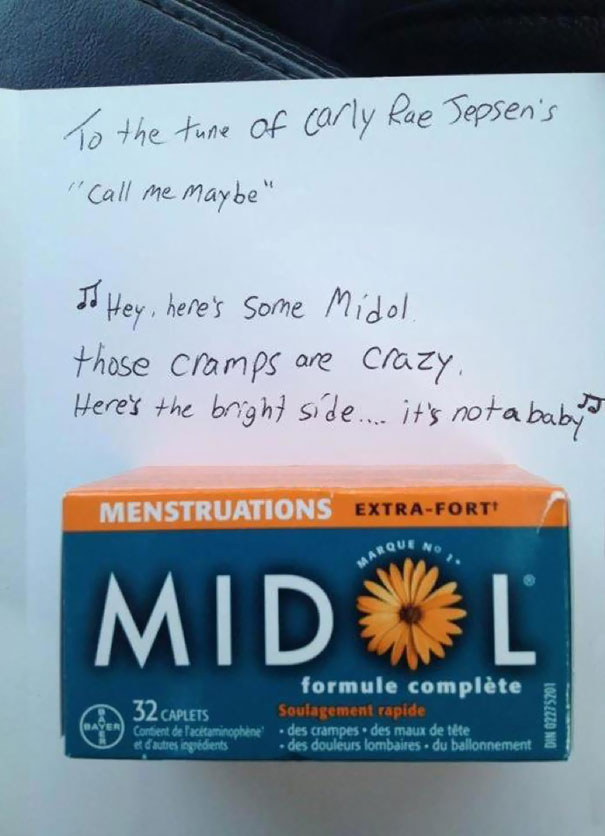 To the tune of Carly Rae Jepsen's
"Call me maybe"
♫ Hey, here's some Midol.
those cramps are crazy.
Here's the bright side.... it's not a baby ♫
MENSTRUATIONS EXTRA-FORT†
MARQUE Nº 1*
MIDOL®
formule complète
32 CAPLETS
Contient de l'acétaminophène
et d'autres ingrédients
BAYER
BAYER
Soulagement rapide
• des crampes • des maux de tête
• des douleurs lombaires • du ballonnement
DIN 02275201